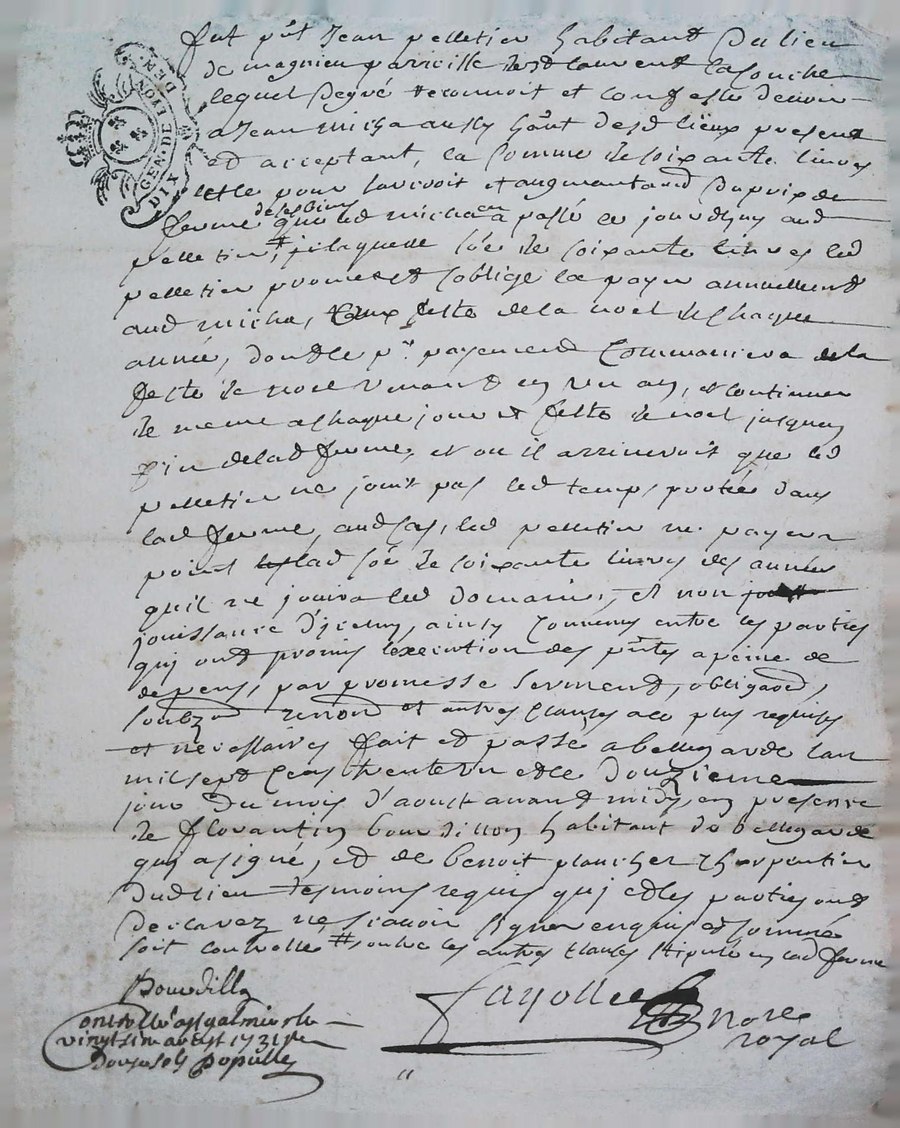 GEN. DE LYON. DEN.
DIX
fut pnt Jean pelletier habitant Du lieu
de magnieu parroisse de st laurent la conche
lequel De gré reconnoit et confesse devoir
a Jean micha aussy hant desd lieux present
et acceptant, la somme de soixante livres
et ce pour survoit et augmentaon Du prix de
ferme de ses biens que led micha en a passé ce jourdhuy aud
pelletier, # icelle so͠e de soixante livres led
pelletier promet et soblige la payer annuellement
aud micha, feste de la noel de chaque
année, dont le pr payement Commancera de la
feste de noel venant en un an, et continuer
de meme a chaque jour et feste de noel jusques
fin de lad ferme, et ou il arriveroit que led
pelletier ne jouit pas led temps porté dans
lad ferme, aud cas, led pelletier ne payera
point lad so͠e de soixante livres des années
quil ne jouira led Domaine, et non
jouissance d'iceluy, ainsy convenu entre les parties
qui ont promis l'execution des pntes a peine de
depens, par promesse serment, obligaon,
renon et autres clauses a ce plus requises
et necessaires fait et passé a bellegarde lan
mil sept cens trente un et le Douzieme
jour Du mois d'aoust avant midy, en presence
de florantin bourdillon habitant de bellegarde
qui a signé, et de benoit plancher charpentier
dud lieu tesmoins requis qui et les parties ont
declarez ne scavoir signer enquis et sommé
soit controllé # outre les autres clauses stipulé en lad ferme
Bourdillon
Fayolle nore
royal
Controllé a st galmier le
vingt six aoust 1731 
Douze sols